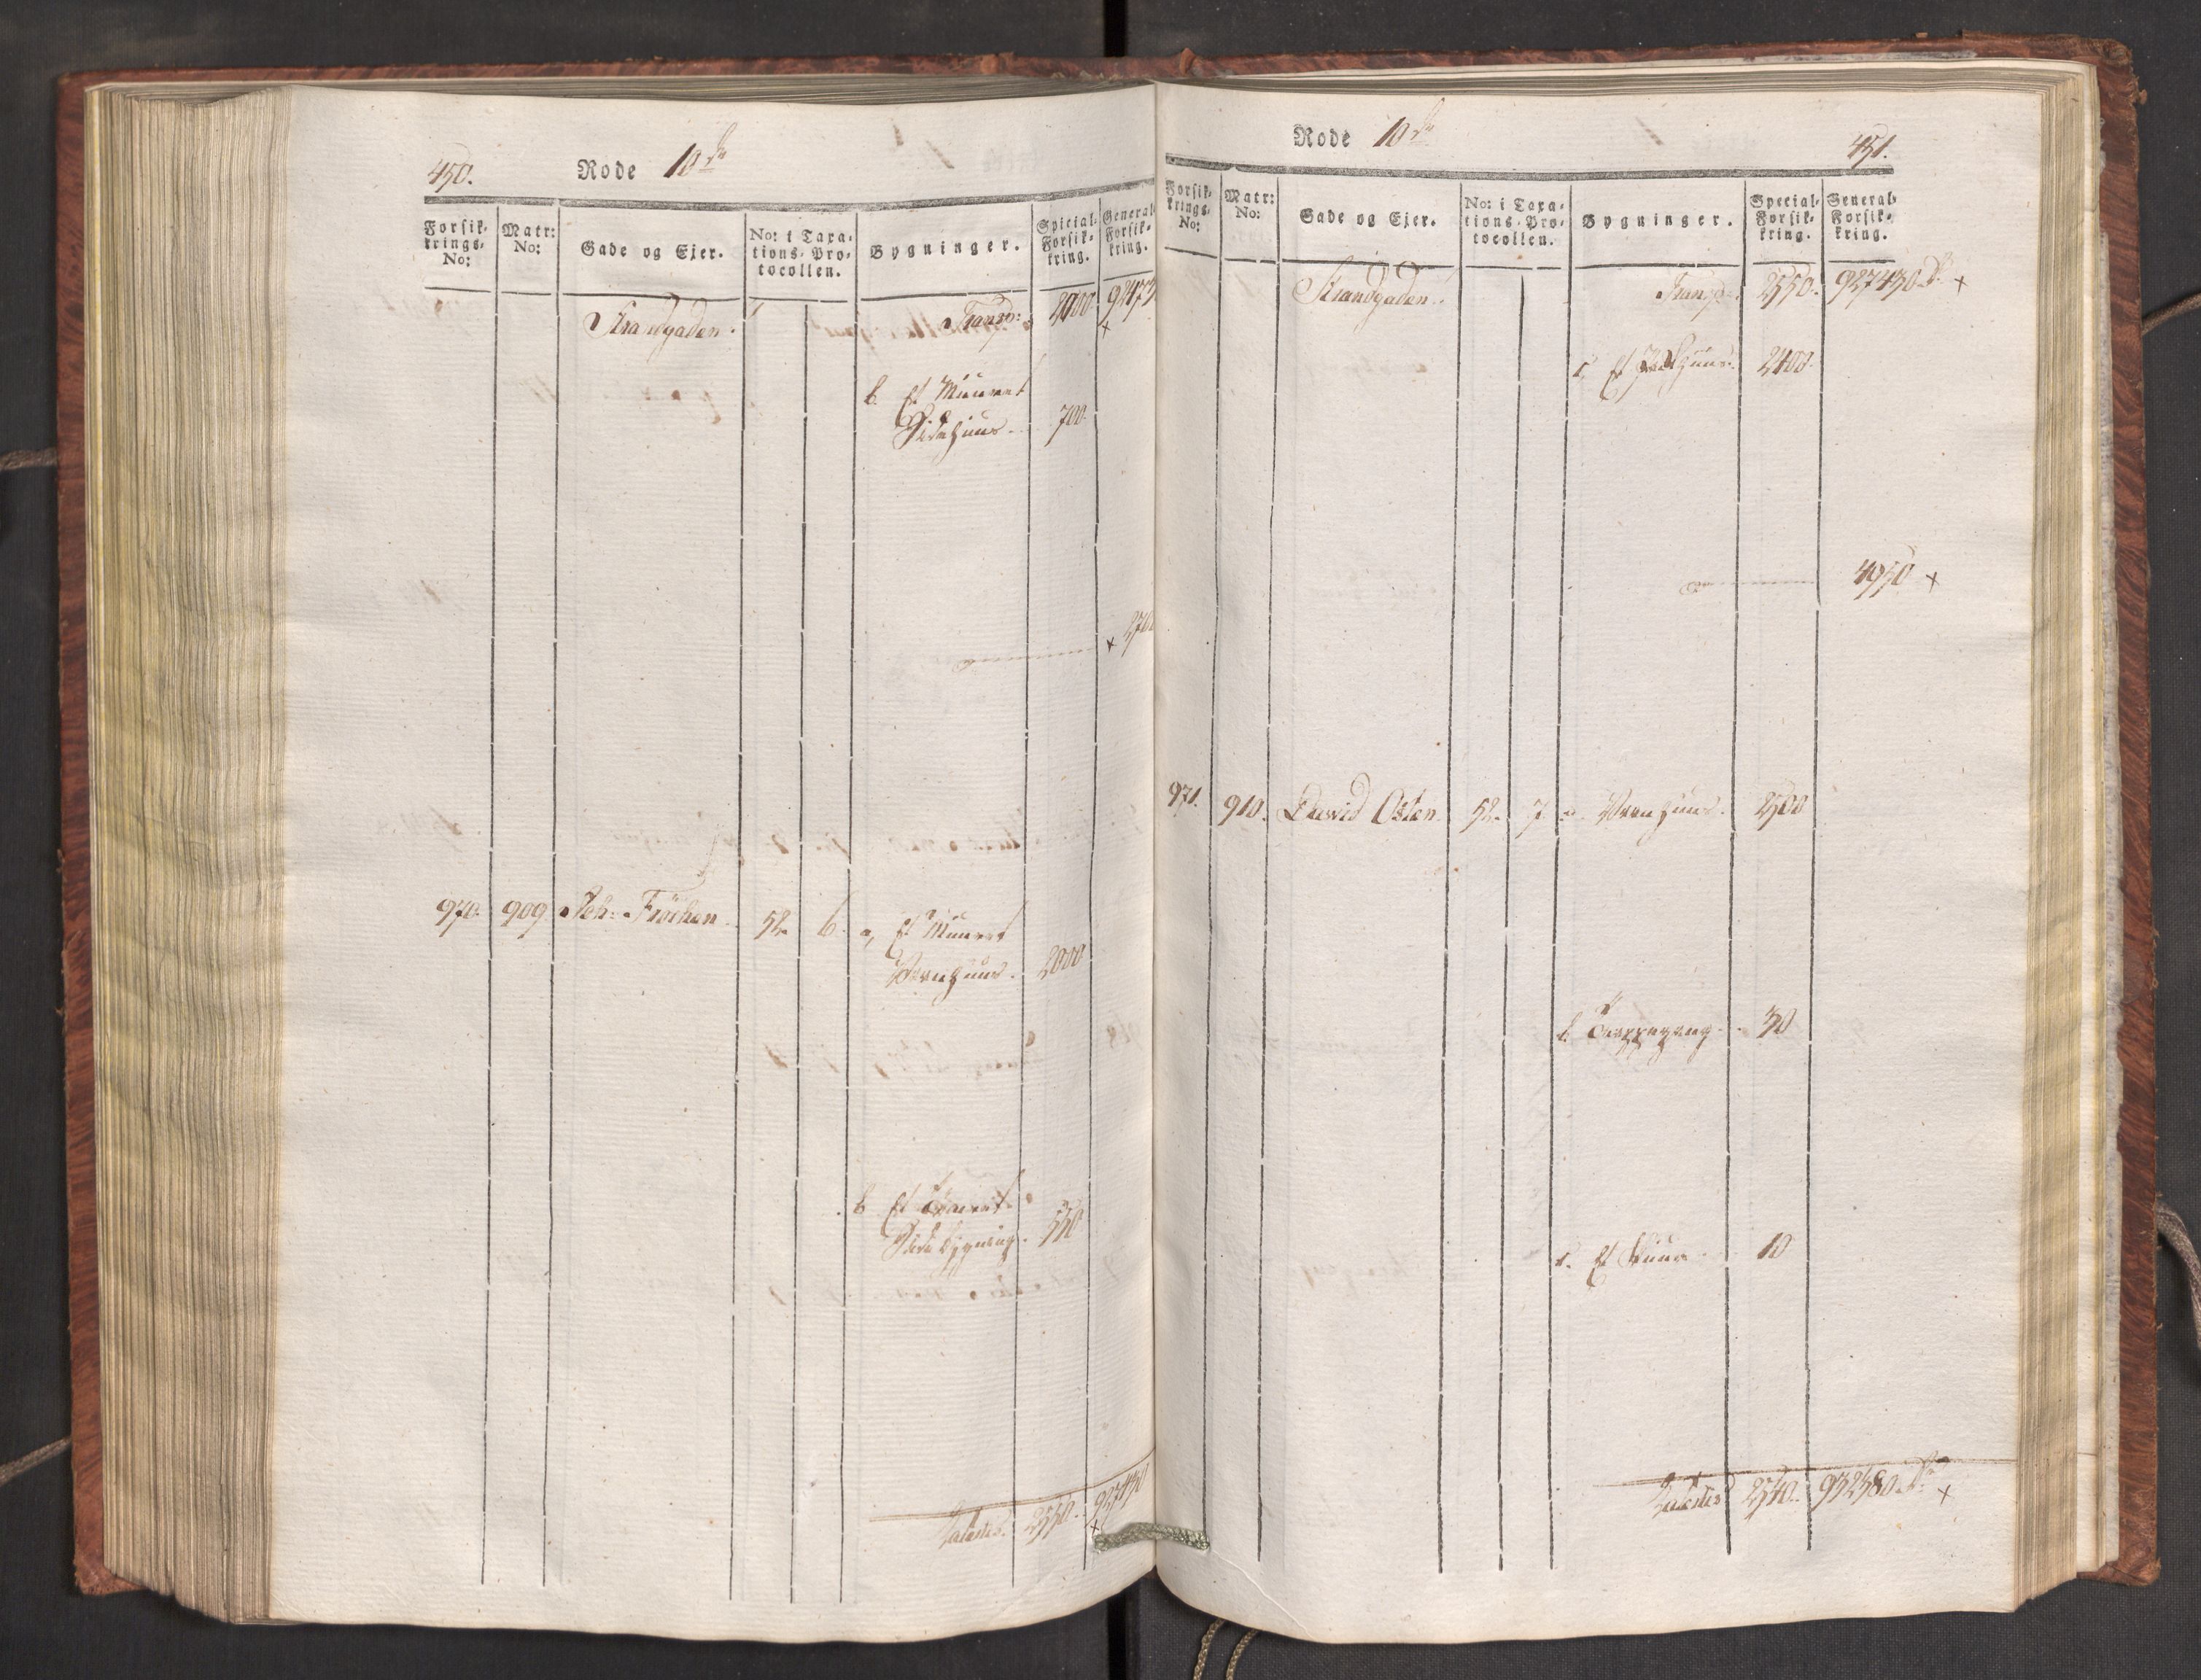 450.
Rode 10de
Forsik-
krings-
No:
Matr:
No:
Gade og Ejer.
No: i Taxa-
tions-Pro-
tocollen.
Bygninger.
Special-
Forsik-
kring.
General-
Forsik-
kring.
Strandgaden.
Transp: 2000.
b. Et Muuret
Sidehuus. 700.
970. 909 Joh: Fröchen. 52. 6. a, Et Muuret
Vaanhuus. 2000
b Et
Sidebygning. 550
Lateris. 2550. 927430
451.
Rode 10de
Forsik-
krings-
No:
Matr:
No:
Gade og Ejer.
No: i Taxa-
tions-Pro-
tocollen.
Bygninger.
Special-
Forsik-
kring.
General-
Forsik-
kring.
Strandgaden. Transp: 2550. 927430 x
c, Et 2400.
4950 x
971. 910. David Osten. 52. 7 a. Vaanhuus. 2500
b. Trappegang. 30
c. Et Skuur 10
Lateris 2540. 932380 x